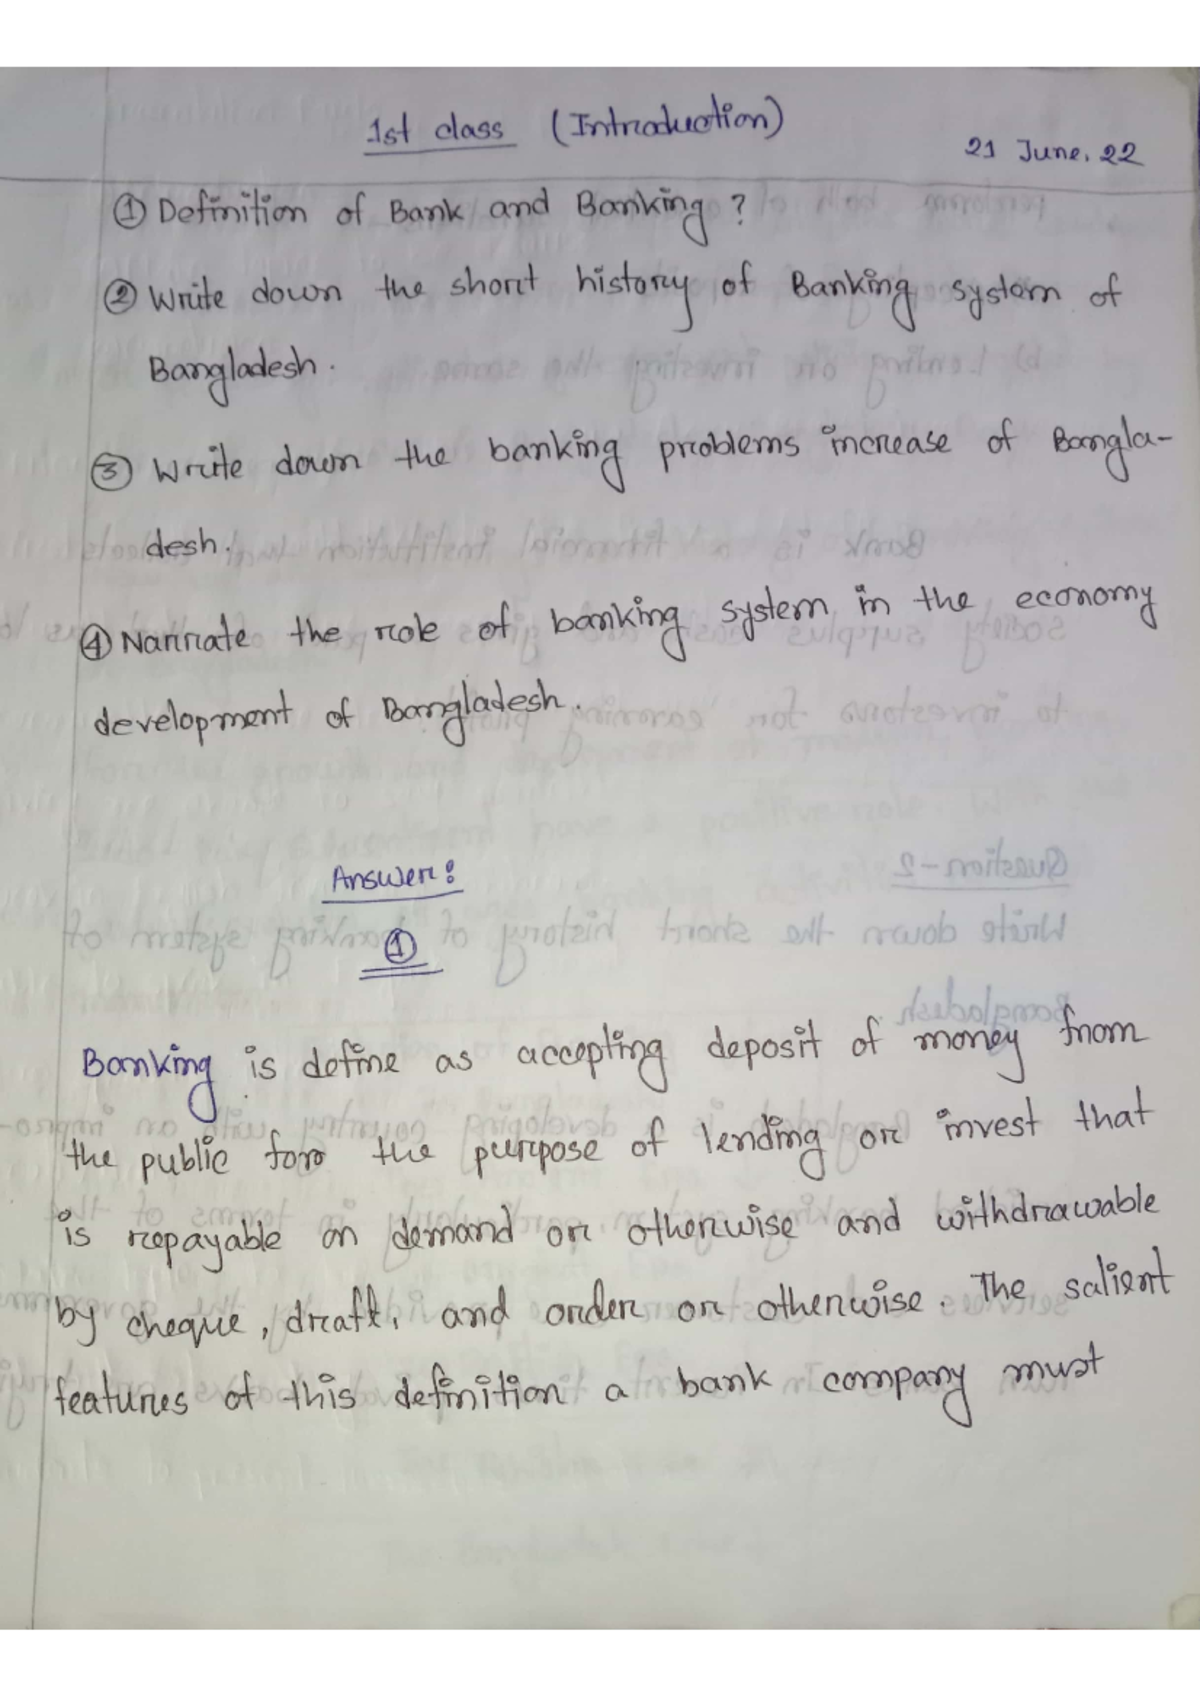 1st class (Introduction)
21 June. 22
① Definition of Bank and Banking ?
② Write down the short history of Banking system of
Bangladesh.
③ Write down the banking problems increase of Bangla-
desh.
④ Narrate the role of banking system in the economy
development of Bangladesh.
Answer:
①
Banking is define as accepting deposit of money from
the public for the purpose of lending or invest that
is repayable on demand or otherwise and withdrawable
by cheque, draft, and order or otherwise. The salient
features of this definition a bank company must